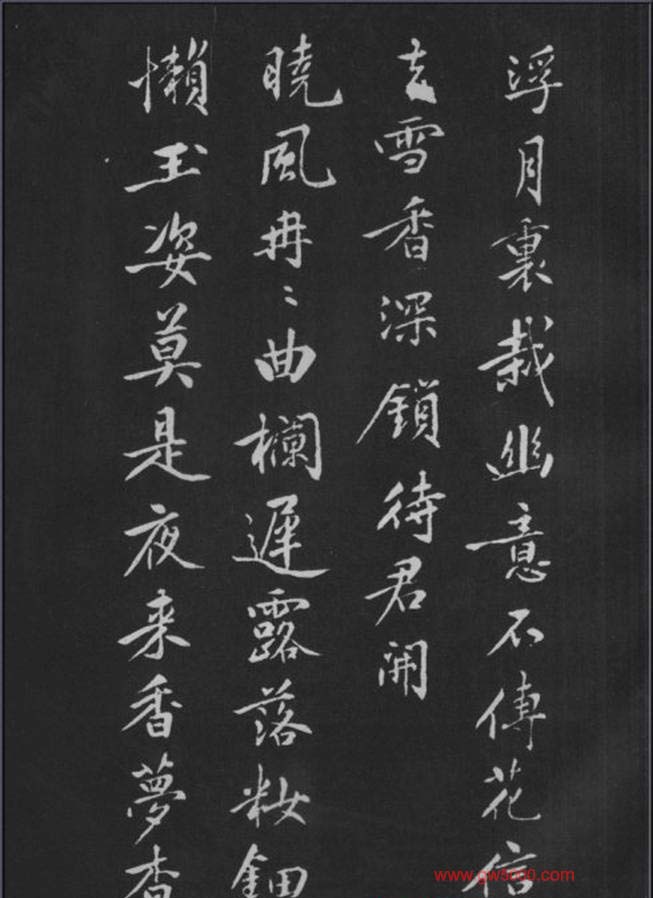 浮月裏栽幽意不傳花信
去雪香深鎖待君開
曉風冉〻曲欄遲露落妝鈿
懶玉姿莫是夜來香夢杳
www.gw5000.com